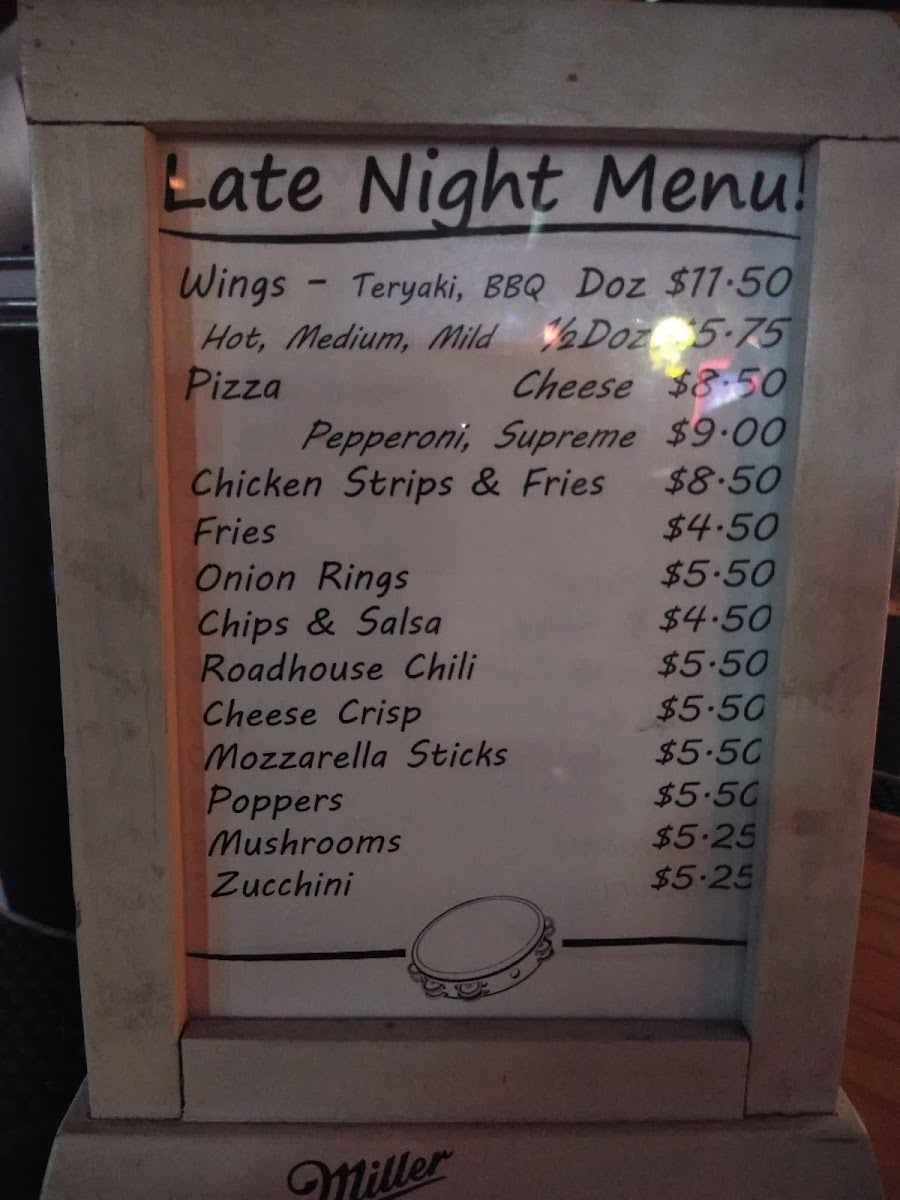 Late Night Menu!
Wings - Teryaki, BBQ Doz $11.50
Hot, Medium, Mild ½Doz $5.75
Pizza Cheese $8.50
Pepperoni, Supreme $9.00
Chicken Strips & Fries $8.50
Fries $4.50
Onion Rings $5.50
Chips & Salsa $4.50
Roadhouse Chili $5.50
Cheese Crisp $5.50
Mozzarella Sticks $5.50
Poppers $5.50
Mushrooms $5.25
Zucchini $5.25
Miller